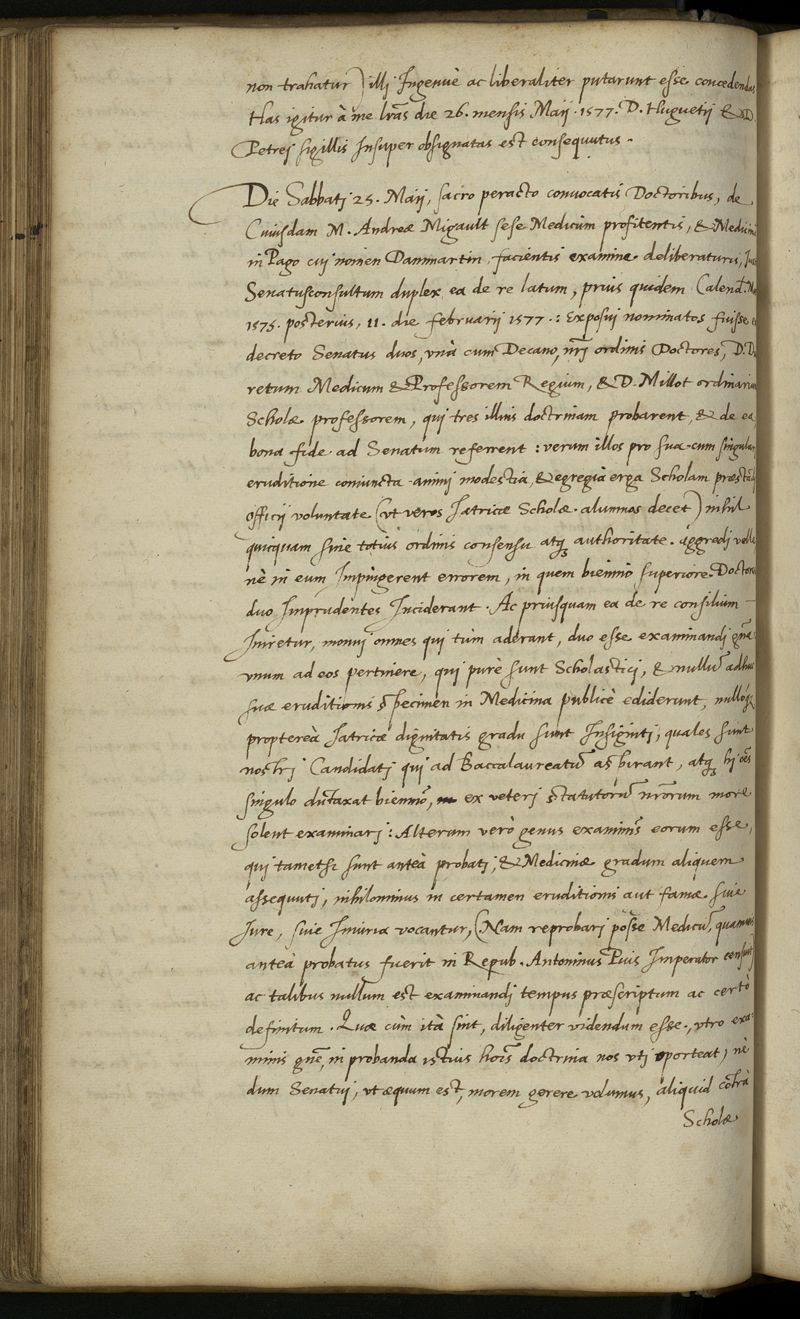 non trahatur) illi Ingenuè ac liberaliter putarunt esse concedendas
Has igitur à me lr̃as die 26. mensis Maij. 1577. D. Huguetij & D
Petrej sigillis Insuper obsignatas est consequutus.
Die Sabbati 25. Maij, sacro peracto convocatis Doctoribus, de
Cuiusdam M. Andreæ Migault sese Medicum profitentis, & Medicinã
in Pago cui nomen Dammartin facientis examine deliberaturis,
Senatusconsultum duplex ea de re latum, prius quidem Calend.
1575. posterius, 11. die februarij 1577.: Exposui nominatos fuisse
decreto Senatus duos, vnà cum Decano, nr̃i ordinis Doctores, D. Du
retum Medicum & Professorem Regium, & D. Millot ordinarium
Scholæ professorem, qui tres illius doctrinam probarent, & de ea
bona fide ad Senatum referrent: verum illos pro sua cum singulari
eruditione coniuncta animi modestia, & egregia erga Scholam præstãdi
officij voluntate (vt veros Iatricæ Scholæ alumnos decet) nihil
quicquam sine totius ordinis consensu atq; authoritate aggredi velle
nè in eum Impingerent errorem, in quem biennio superiore Doctores
duo Imprudentes Inciderant. Ac priusquam ea de re consilium
Iniretur, monui omnes qui tum aderant, duo esse examinandi gñã
vnum ad eos pertinere, qui purè sunt Scholastici, & nullũ adhuc
suæ eruditionis specimen in Medicina publicè ediderunt, nulloq;
proptereà Iatricæ dignitatis gradu sunt Insigniti, quales sunt
nostri Candidati qui ad Baccalaureatũ aspirant, atq; hi oẽs
singulo dũtaxat biennio, ex veteri statutorũ nr̃orum more
solent examinari: Alterum verò genus examinis eorum esse,
qui tametsi sunt anteà probati, & Medicinæ gradum aliquem
assequuti, nihilominus in certamen eruditionis aut famæ siue
Iure, siue Iniuria vocantur, (Nam reprobari posse Medicũ, quamuis
anteà probatus fuerit in Repub. Antoninus Pius Imperator censuit)
ac talibus nullum est examinandi tempus præscriptum ac certò
definitum. Quæ cùm ità sint, diligenter videndum esse, vtro exa-
minis gñe, in probanda istius hoĩs doctrina nos vti oporteat, nè
dum Senatui, vt æquum est, morem gerere volumus, aliquid cõtrà
Scholæ